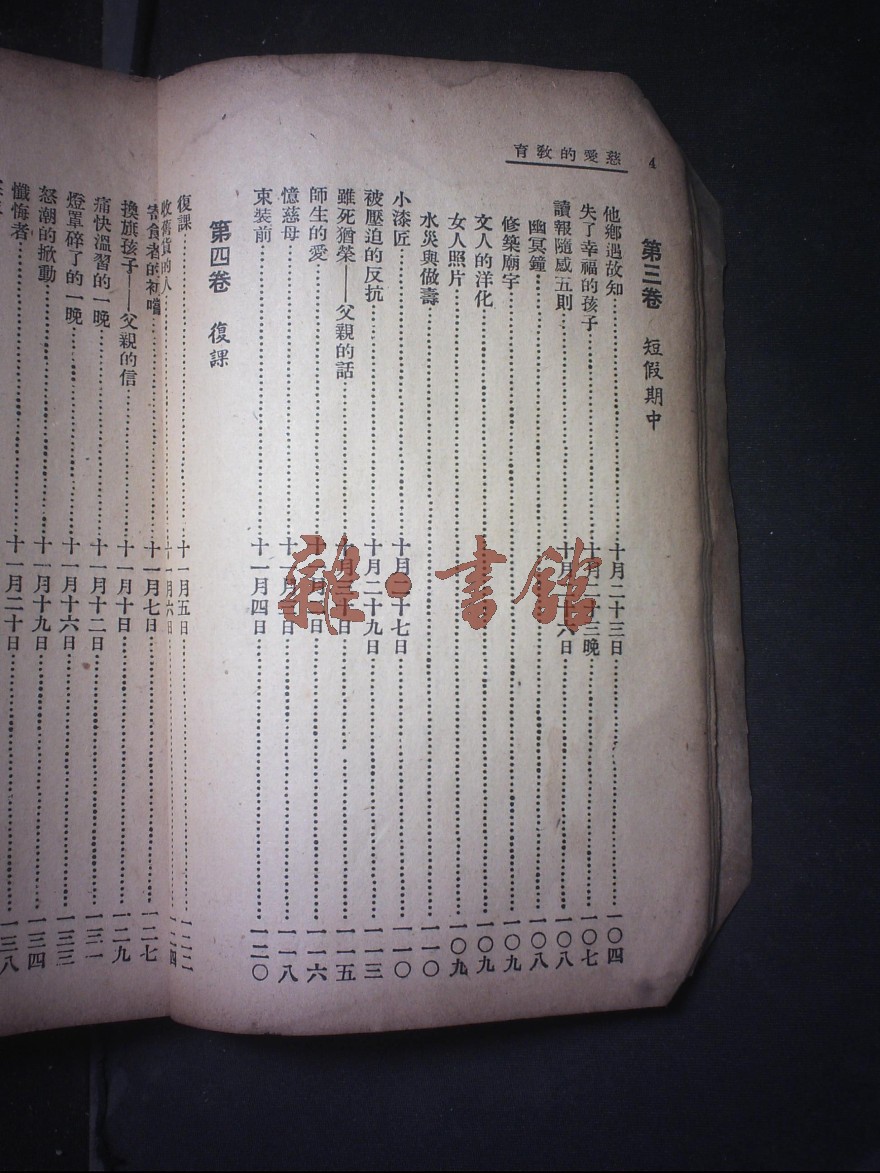 4 慈愛的教育
第三卷 短假期中
他鄉遇故知 十月二十三日 一〇四
失了幸福的孩子 十月二十三晚 一〇七
讀報隨感五則 十月二十六日 一〇八
幽冥鐘 一〇八
修築廟宇 一〇九
文人的洋化 一〇九
女人照片 一〇九
水災與做壽 一一〇
小漆匠 十月二十七日 一一〇
被壓迫的反抗 十月二十九日 一一三
雖死猶榮——父親的話 十月三十日 一一五
師生的愛 十一月二日 一一六
憶慈母 十一月三日 一一八
束裝前 十一月四日 一二〇
第四卷 復課
復課 十一月五日 一二二
收舊貨的人 十一月六日 一二四
寄食者的初嚐 十一月七日 一二七
換旗孩子——父親的信 十一月十日 一二九
痛快溫習的一晚 十一月十二日 一三一
燈罩碎了的一晚 十一月十六日 一三三
怒潮的掀動 十一月十九日 一三四
懺悔者 十一月二十日 一三八
雜·書館